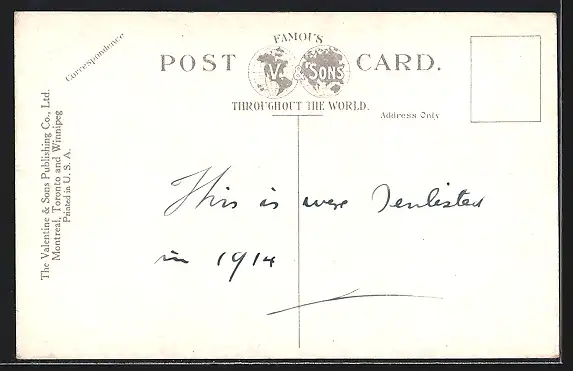 Correspondence
FAMOUS
POST V. & SONS CARD.
THROUGHOUT THE WORLD.
Address Only
The Valentine & Sons Publishing Co., Ltd.
Montreal, Toronto and Winnipeg
Printed in U. S. A.
This is were I enlisted
in 1914